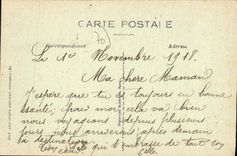 CARTE POSTALE
Correspondance
Adresse
Le 1er Novembre 1918.
Ma chère Maman
J'espère que tu es toujours en bonne
santé, pour moi cela va bien
nous voyageons depuis plusieurs
jours nous arriverons après demain
à destination
Ton qui t'embrasse de tout son